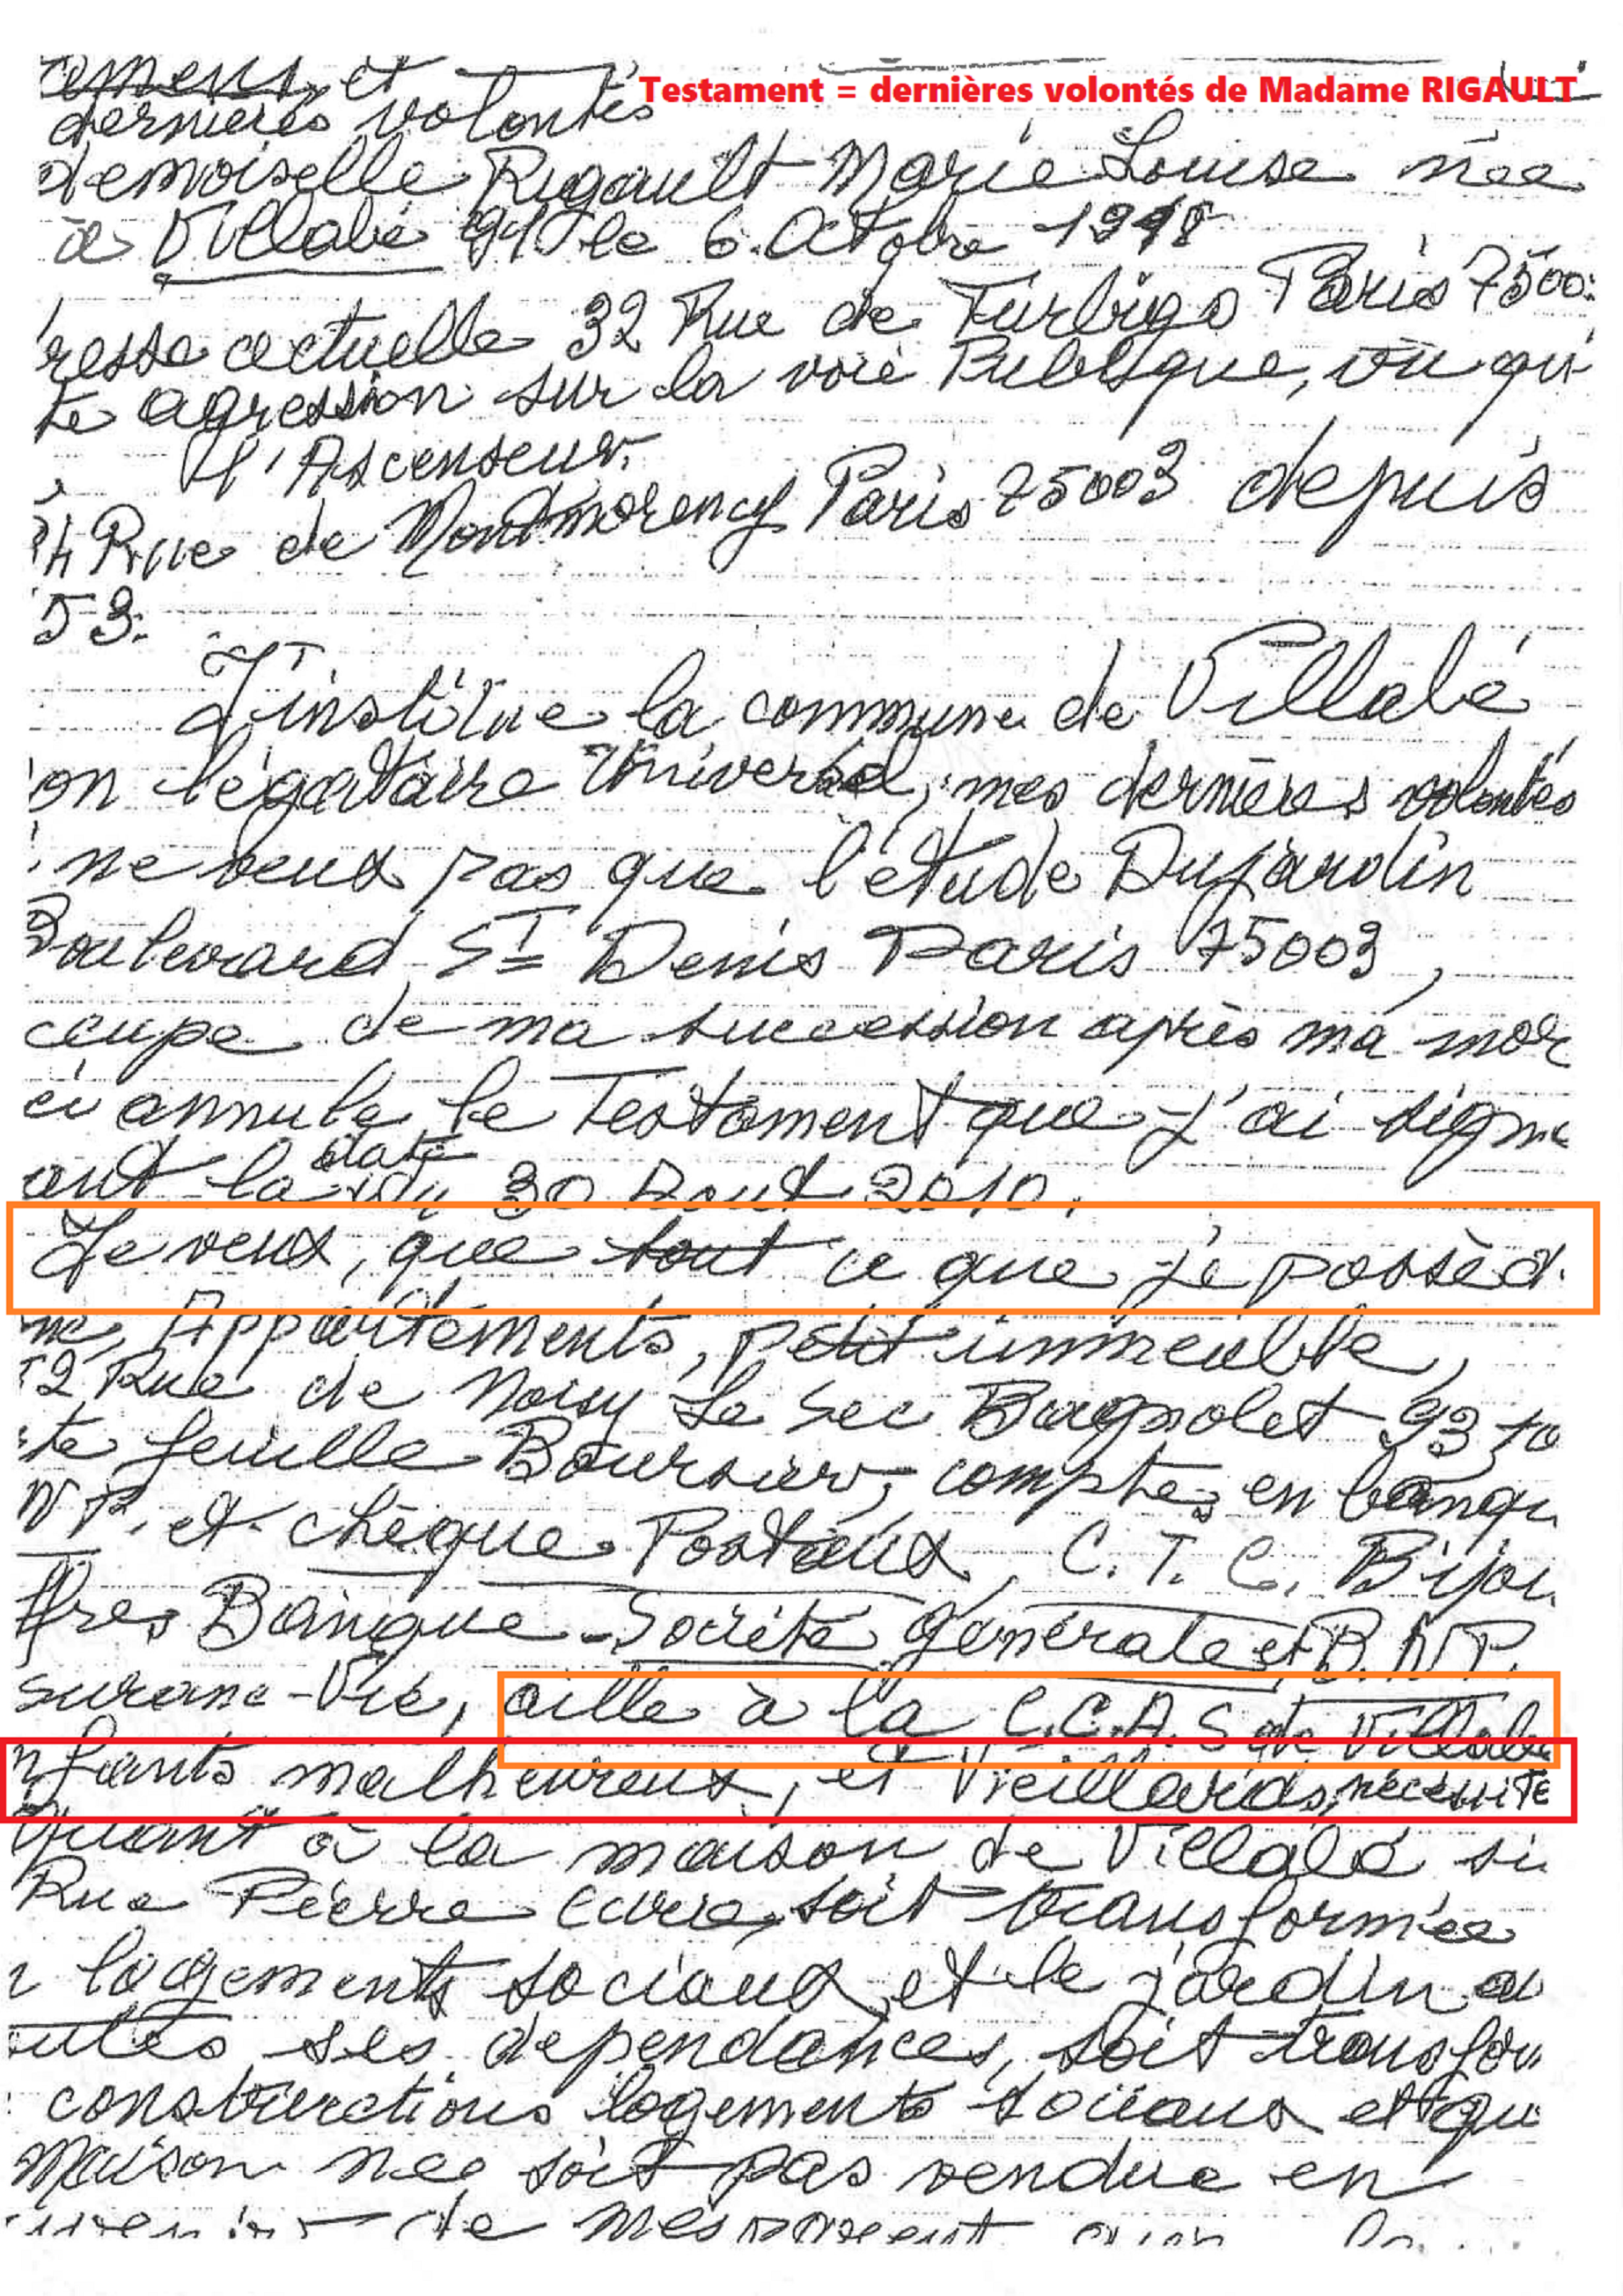 Testament = dernières volontés de Madame RIGAULT
et
dernières volontés
demoiselle Rigault Marie Louise née
à Villabé 91 le 6 Octobre 19
resse actuelle 32 Rue de Turbigo Paris 7500
te agression sur la voie Publique, vu qu
l'Ascenseur.
Rue de Montmorency Paris 75003 depuis
53.
J'institue la commune de Villabé
on légataire Universel, mes dernières volontés
ne veux pas que l'étude Dujardin
Boulevard St Denis Paris 75003,
ccupe de ma succession après ma mor
ci annule le Testament que j'ai signé
ant la date du 30 Aout 2010.
Je veux, que tout ce que je possèd
me, Appartements, petit immeuble,
52 Rue de Noisy Le Sec Bagnolet 93
te feuille Boursier, comptes en banqu
N P. et chèque Postaux, C.T.C. Bijou
ffres Banque Société générale et B.N.P.
suranc-Vie, aille à la C.C.A.S de Villabé
nfants malheureux, et Vieillards, nécessité
Quant à la maison de Villabé si
Rue Pierre Curie, soit transformée
logements sociaux, et le jardin a
outes ses dependances, soit transfor
constructions logements sociaux et qu
Maison nee soit pas vendue en
de mes